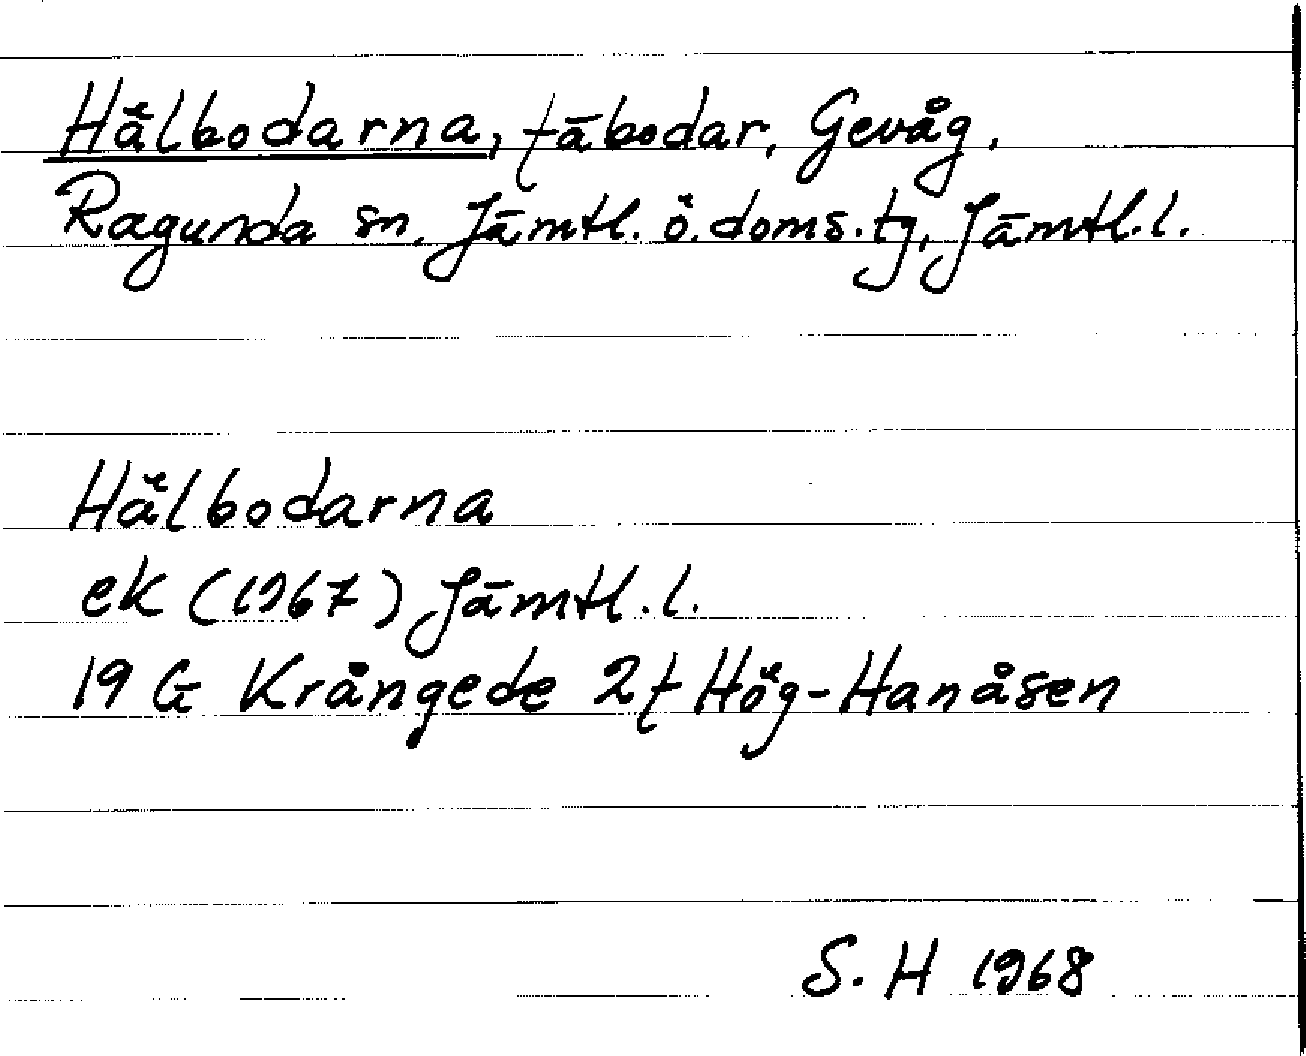 Hälbodarna, fäbodar, Gevåg,
Ragunda sn. Jämtl. ö. doms.tg, Jämtl.l.
Hälbodarna
ek (1967) Jämtl.l.
19 G Krångede 2f Hög-Hanåsen
S. H 1968